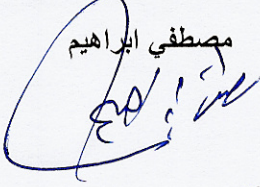 مصطفي ابراهيم